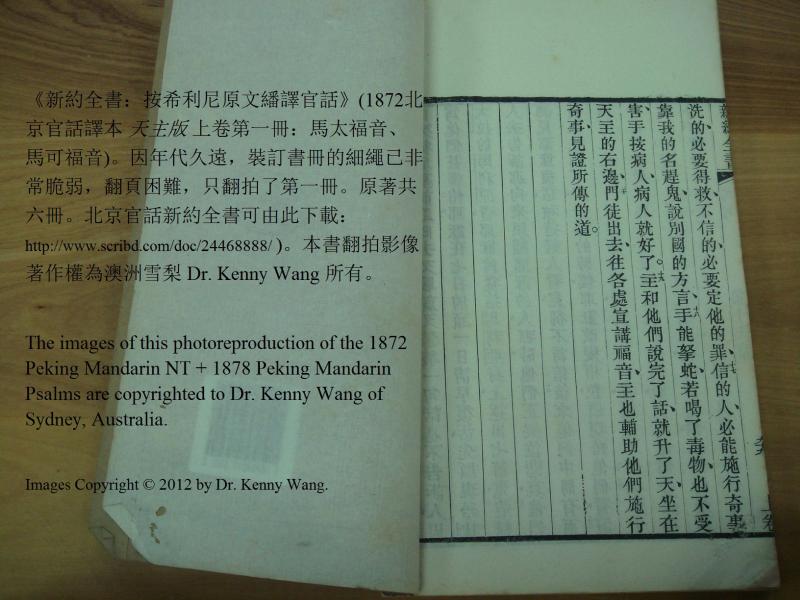 《新約全書：按希利尼原文繙譯官話》(1872北
京官話譯本 天主版 上卷第一冊：馬太福音、
馬可福音)。因年代久遠，裝訂書冊的細繩已非
常脆弱，翻頁困難，只翻拍了第一冊。原著共
六冊。北京官話新約全書可由此下載：
http://www.scribd.com/doc/24468888/ )。本書翻拍影像
著作權為澳洲雪梨 Dr. Kenny Wang 所有。
The images of this photoreproduction of the 1872
Peking Mandarin NT + 1878 Peking Mandarin
Psalms are copyrighted to Dr. Kenny Wang of
Sydney, Australia.
Images Copyright © 2012 by Dr. Kenny Wang.
新約全書
上卷
洗的、必要得救、不信的、必要定他的罪、信的人、必能施行奇事、
靠我的名趕鬼、說別國的方言、手能拏蛇、若喝了毒物、也不受
害、手按病人、病人就好了。主和他們說完了話、就升了天、坐在
天主的右邊、門徒出去、往各處宣講福音、主也輔助他們、施行
奇事、見證所傳的道。